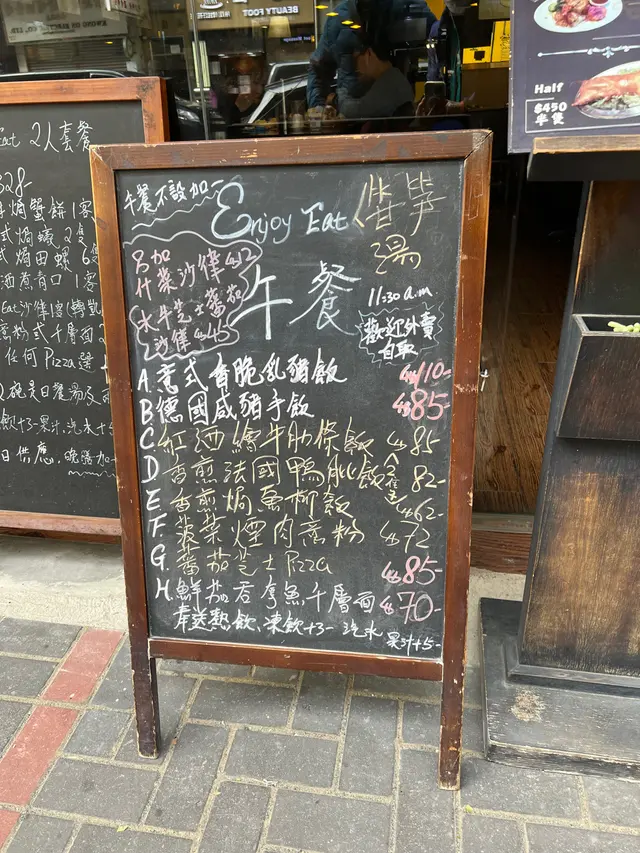 BEAUTY FOOT
Eat 2人套餐
328-
焗蟹餅1客
式焗蠔2隻
式焗田螺6隻
酒煮青口1客
意粉式千層面2
任何Pizza選
飲+3-果汁,汽水+5
日供應,晚膳加
午餐不設加一
Enjoy Eat
湯
另加
什菜沙律$42
水牛芝士蕃茄
沙律$45
午餐
11:30 a.m
歡迎外賣
自取
A. 意式香脆乳豬飯 $110-
B. 德國咸豬手飯 $85-
C 紅酒繪牛肋條飯 $85
D 香煎法國鴨脾飯 82-
E. 香煎焗魚柳飯 $62-
F. 菠菜煙肉意粉 $72
G. 蕃茄芝士Pizza $85
H. 鮮茄吞拿魚千層面 $70-
奉送熱飲、凍飲+3- 汽水 果汁+5-
Half
$450
半隻